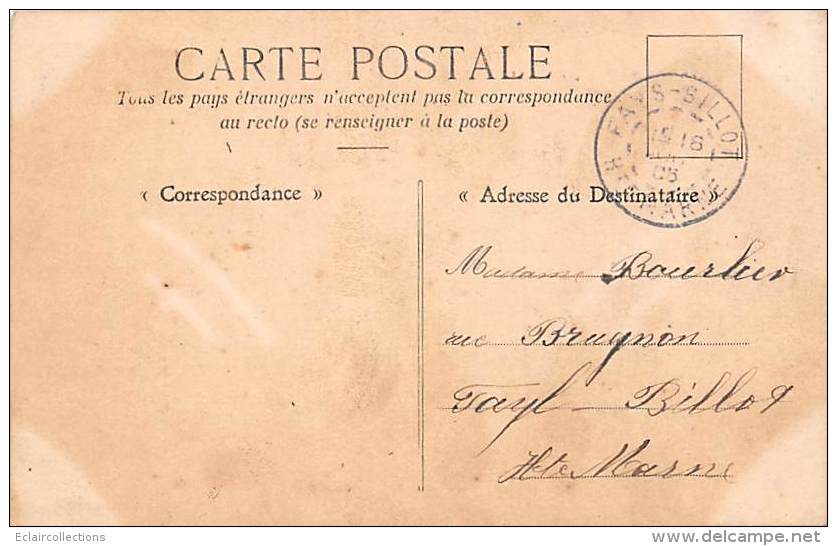 CARTE POSTALE
Tous les pays étrangers n'acceptent pas la correspondance
au recto (se renseigner à la poste)
« Correspondance »
« Adresse du Destinataire »
FAYS-BILLOT
18
05
HTE MARNE
Madame Bourlier
rue Brugnon
Fayl-Billot
Hte Marne
Eclaircollections
www.delcampe.net